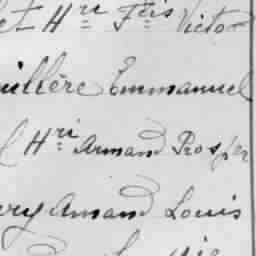 et Hri Fçis Victor
uillère Emmanuel
l Hri Armand Prosper
ery Amand Louis